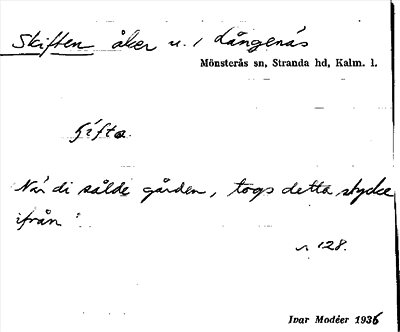 Skiften åker u. 1 Långenäs
Mönsterås sn, Stranda hd, Kalm. l.
När di sålde gården, togs detta stycke
ifrån".
128.
Ivar Modéer 1936